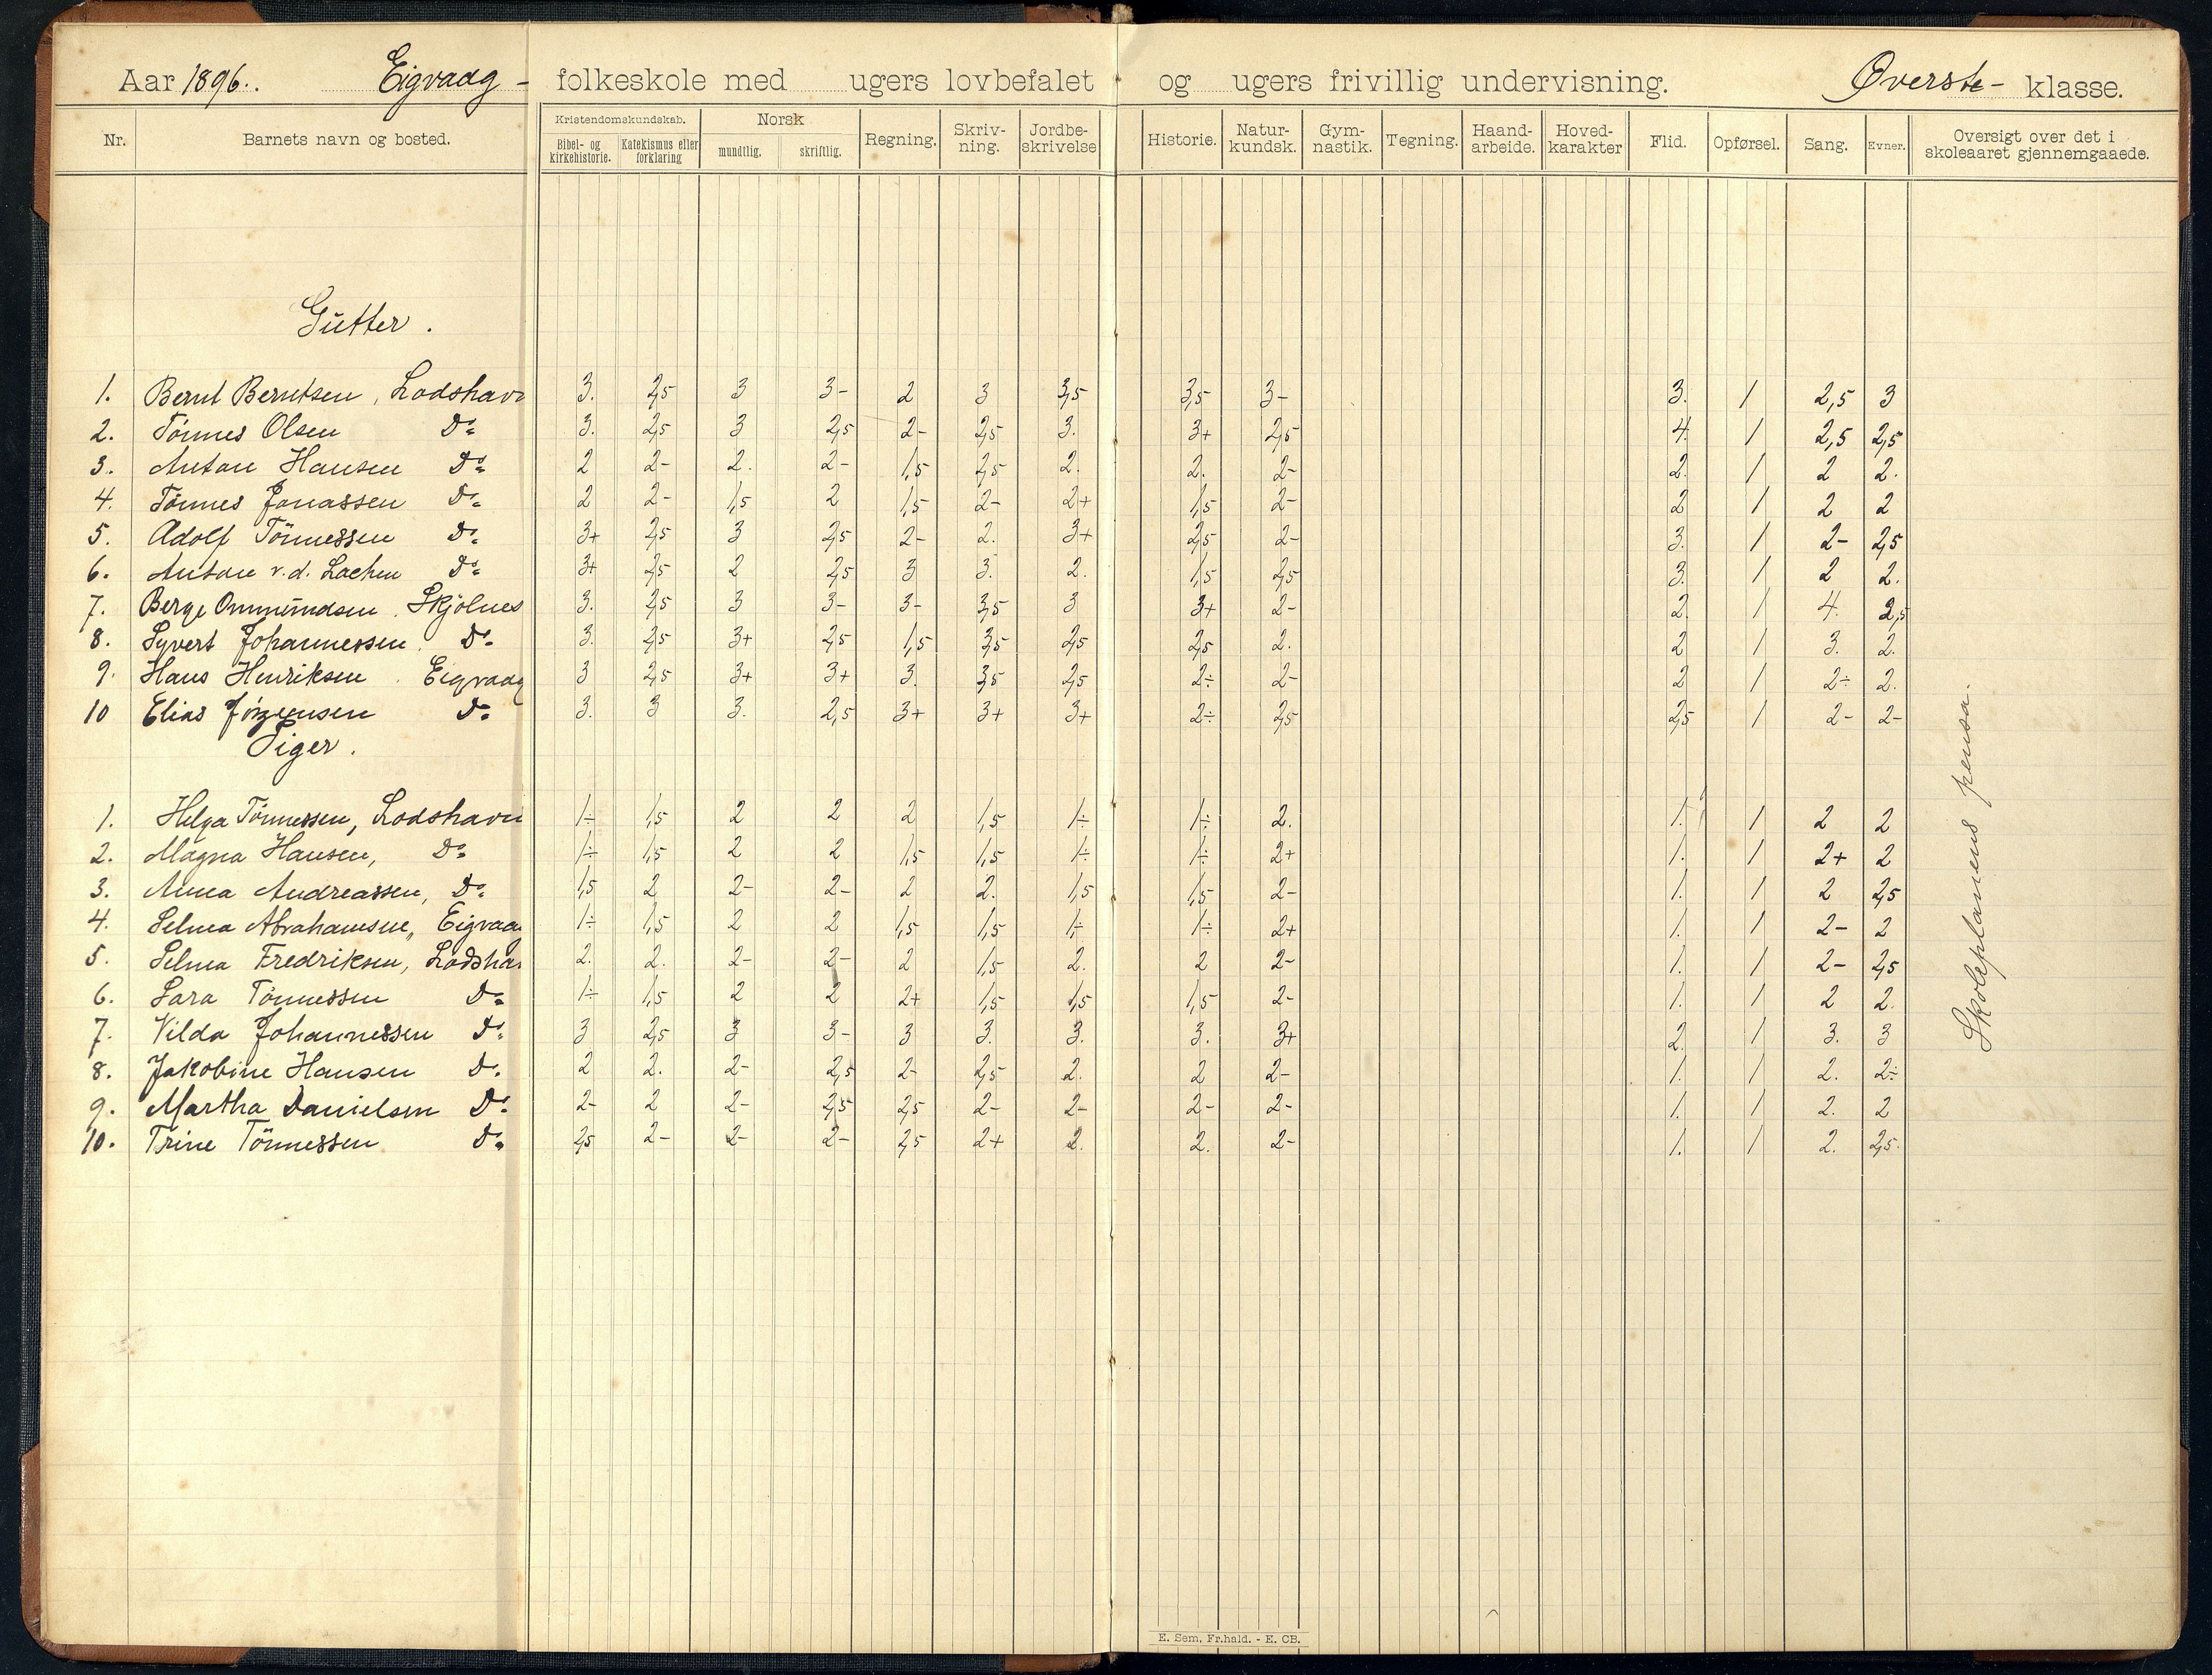 Aar 1896. Eigvaag - folkeskole med ugers lovbefalet og ugers frivillig undervisning. Øverste - klasse.
Nr. Barnets navn og bosted. Kristendomskundskab. Bibel- og kirkehistorie. Katekismus eller forklaring Norsk mundtlig. skriftlig. Regning. Skriv-ning. Jordbe-skrivelse Historie. Natur-kundsk. Gym-nastik. Tegning. Haand-arbeide. Hoved-karakter Flid. Opførsel. Sang. Evner. Oversigt over det i skoleaaret gjennemgaaede.
Gutter.
1. Bernt Berntsen, Lodshavn 3. 2,5 3 3- 2 3 3,5 3,5 3- 3. 1 2,5 3
2. Tönnes Olsen Do 3. 2,5 3 2,5 2- 2,5 3. 3+ 2,5 4. 1 2,5 2,5
3. Anton Hansen Do 2 2- 2. 2- 1,5 2,5 2. 2. 2- 2. 1 2 2.
4. Tönnes Jonassen Do 2 2- 1,5 2 1,5 2- 2+ 1,5 2- 2 1 2 2
5. Adolf Tönnessen Do 3+ 2,5 3 2,5 2- 2. 3+ 2,5 2- 3. 1 2- 2,5
6. Anton v.d. Lachen Do 3+ 2,5 2 2,5 3 3. 2. 1,5 2,5 3. 1 2 2.
7. Berge Ommundsen. Skjolnes 3. 2,5 3 3- 3- 3,5 3 3+ 2- 2. 1 4. 2,5
8. Syvert Johannessen. Do 3. 2,5 3+ 2,5 1,5 3,5 2,5 2,5 2. 2 1 3. 2.
9. Hans Henriksen. Eigvaag 3 2,5 3+ 3+ 3. 3,5 2,5 2÷ 2- 2 1 2÷ 2.
10 Elias Jörgensen Do 3. 3 3. 2,5 3+ 3+ 3+ 2÷ 2,5 2,5 1 2- 2-
Piger.
1. Helga Tönnessen, Lodshavn 1÷ 1,5 2 2 2 1,5 1÷ 1÷ 2. 1. 1 2 2
2. Magna Hansen, Do 1÷ 1,5 2 2 1,5 1,5 1÷ 1÷ 2+ 1. 1 2+ 2
3. Anna Andreassen, Do 1,5 2 2- 2- 2 2. 1,5 1,5 2- 1. 1 2 2,5
4. Selma Abrahamsen, Eigvaag 1÷ 1,5 2 2 1,5 1,5 1÷ 1÷ 2+ 1. 1 2- 2
5. Selma Fredriksen, Lodshav 2. 2. 2- 2- 2 1,5 2. 2 2- 1. 1 2- 2,5
6. Sara Tönnessen Do 1÷ 1,5 2 2 2+ 1,5 1,5 1,5 2- 1. 1 2 2.
7. Vilda Johannessen Do 3 2,5 3 3- 3 3. 3. 3. 3+ 2. 1 3. 3
8. Jakobine Hansen Do 2 2. 2- 2,5 2- 2,5 2. 2 2- 1. 1 2. 2÷
9. Martha Danielsen Do 2- 2 2- 2,5 2,5 2- 2- 2- 2- 1. 1 2. 2
10. Trine Tönnessen Do 2,5 2- 2- 2- 2,5 2+ 2. 2. 2- 1. 1 2. 2,5.
Skoleplanens pensa.
E. Sem, Fr.hald. - E. CB.